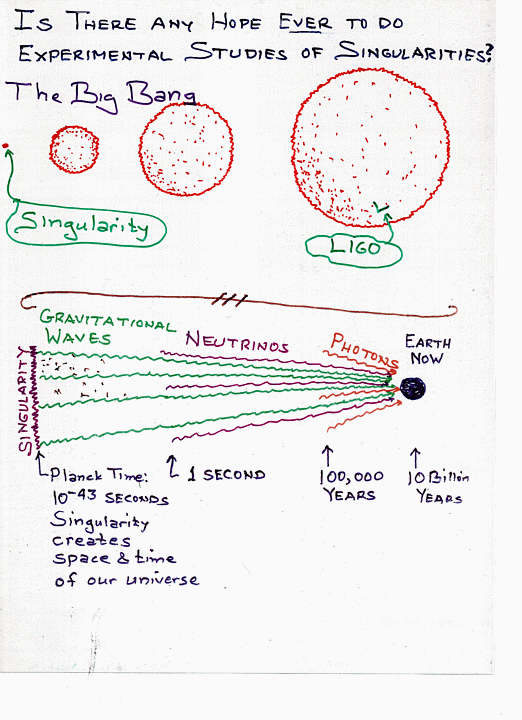 Is There Any Hope Ever to do
Experimental Studies of Singularities?
The Big Bang
Singularity
LIGO
Gravitational
Waves
Neutrinos
Photons
Earth
Now
Singularity
Planck Time:
10-43 seconds
Singularity
creates
space & time
of our universe
1 Second
100,000
Years
10 Billion
Years